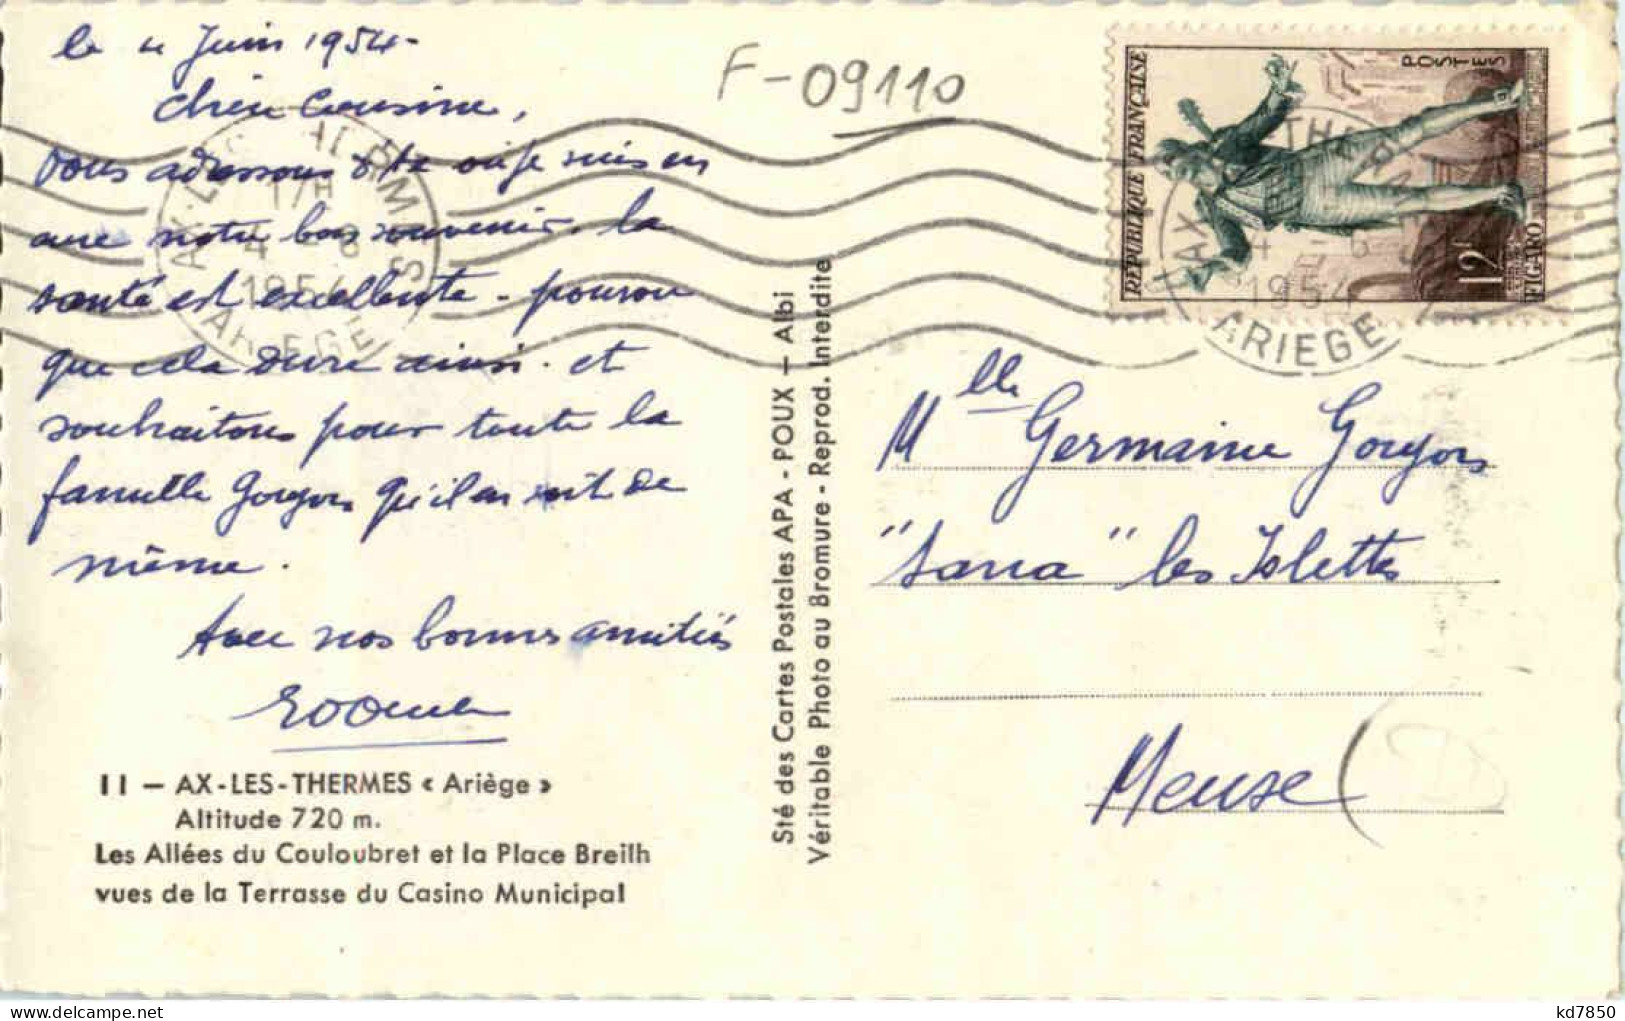 le 4 Juin 1954 -
chère Cousine,
vous adressons d'Ax où je suis en
cure notre bon souvenir. la
santé est excellente - pourvu
que cela dure ainsi. et
souhaitons pour toute la
famille Gougors qu'il en soit de
même.
Avec nos bonnes amitiés
11 – AX-LES-THERMES « Ariège »
Altitude 720 m.
Les Allées du Couloubret et la Place Breilh
vues de la Terrasse du Casino Municipal
Sté des Cartes Postales APA - POUX – Albi
Véritable Photo au Bromure - Reprod. Interdite
F-09110
RÉPUBLIQUE FRANÇAISE
POSTES
12F
FIGARO
17H
4 - 6
1954
ARIEGE
Mlle Germaine Gougors
"Sana" les Islettes
Meuse
kd7850